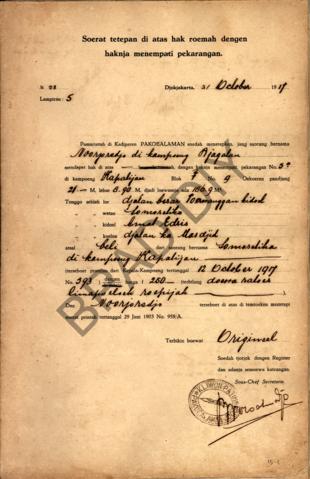 Soerat tetepan di atas hak roemah dengen
haknja menempati pekarangan.
N 28
Djokjakarta, 31 October 1917
Lampiran: 5
Pamarentah di Kadipaten PAKOEALAMAN soedah menetepken, jang soerang bernama
Noorpredjo di kampoeng Bjagalan
mendapet hak di atas dengen haknja menempati pekarangan No. 5
di kampoeng Kapatijan Blok 7 9 Oekoeran pandjang
21.— M. lebar 8.90 M. djadi loewasnja ada 186.9 M²
Tengga sebelah lor djalan besar
wetan Somoredika
kidoel Amat Edris
koelon djalan ka Mesdjid
asal beli dari orang bernama Somoredika
di kampoeng Kapatijan
(terseboet proces dari Kepala-Kampoeng tertanggal 12 October 1917
No 393 harga f 250 — tedoeng doewa ratoes
limapoeloeh roepijah
Dan Noorpredjo terseboet di atas di temtoeken menetepi
soerat prentah tertanggal 29 Juni 1903 No. 958/A.
Terbikin boewat Origineel
Soedah tjotjok dengen Register
dan adanja semoewa katrangan.
Sous-Chef Secretaris,
BPAD DIY